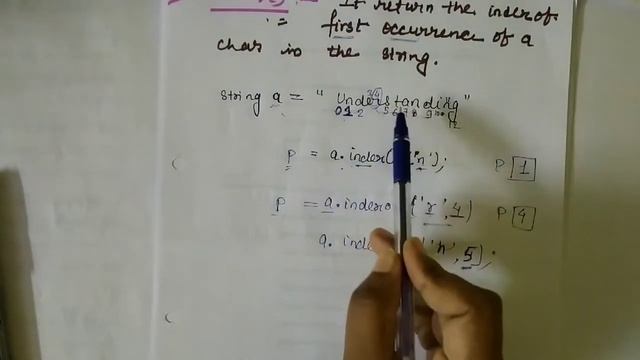 It return the index of
= first occurrence of a
char in the string.
String a = " Understanding"
0 1 2 3 4 5 6 7 8 9 10 11 12
P = a. index( 'n'); P 1
P = a. indexo ('r', 4) P 4
a. inde 'n', 5);